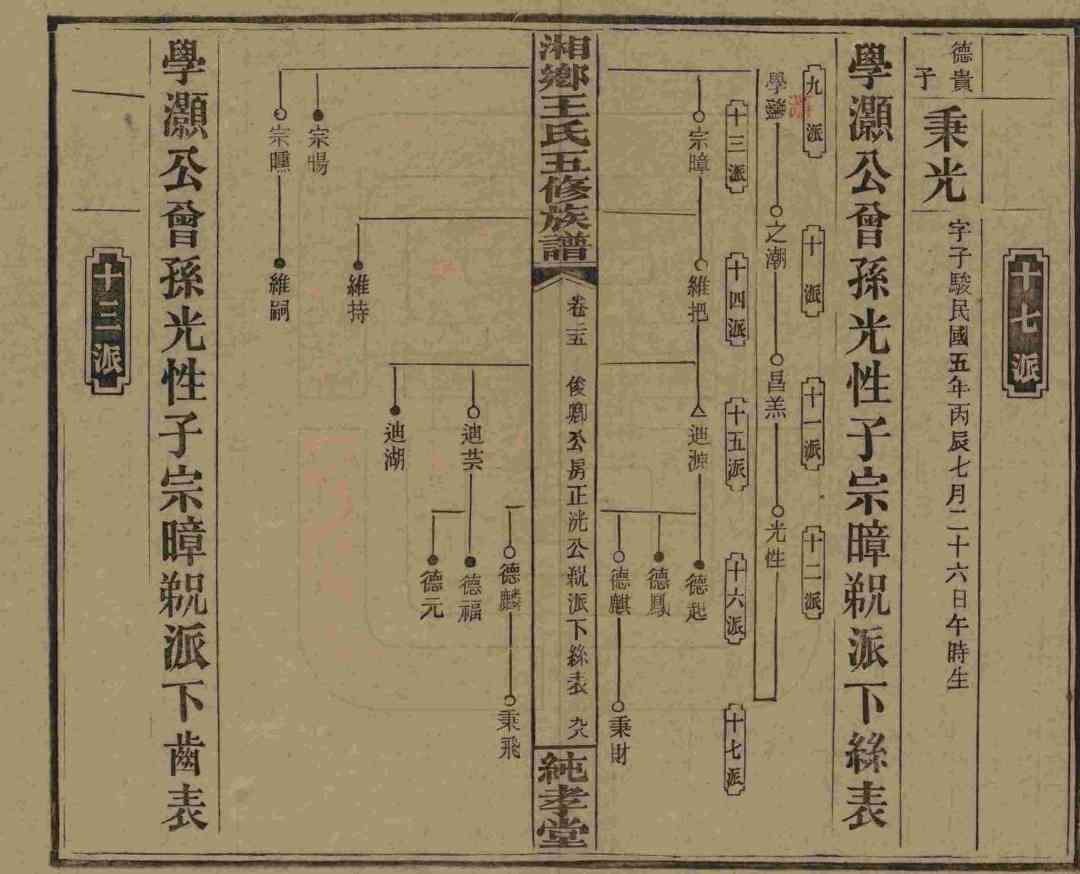 十七派
德貴子
秉光
字子駿民國五年丙辰七月二十六日午時生
學灝公曾孫光性子宗暲覜派下絲表
九派
十派
十一派
十二派
學灝
之潮
昌羔
光性
十三派
十四派
十五派
十六派
十七派
宗暲
維把
迪
德起
德鳳
德麒
秉財
湘鄉王氏五修族譜
卷二五
俊卿公房正洸公覜派下絲表
九八
純孝堂
德麟
秉飛
迪芸
德福
德元
迪湖
維持
宗暘
宗曛
維嗣
學灝公曾孫光性子宗暲覜派下齒表
十三派